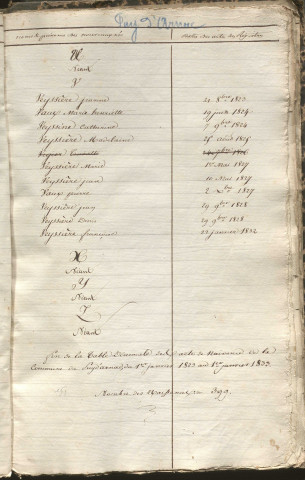 Puy d'Arnac
U
Néant
V
Veyssière Jeanne 21 8bre 1823
Vaux Marie henriette 19 juin 1824
Veyssière Catherine 7 9bre 1824
Veyssière Madelaine 25 août 1825
Veyssière Marie 1er Mai 1827
Veyssière jean 10 Mai 1827
Vaux pierre 2 Xbre 1827
Veyssière jean 29 9bre 1828
Veyssière Denis 29 9bre 1828
Veyssière françoise 22 janvier 1832
X
Néant
Y
Néant
Z
Néant
fin de la Table Décennale des acte de Naissance de la
Commune de Puydarnac du 1er janvier 1823 au 1er janvier 1833
Nombre des Naissances 392